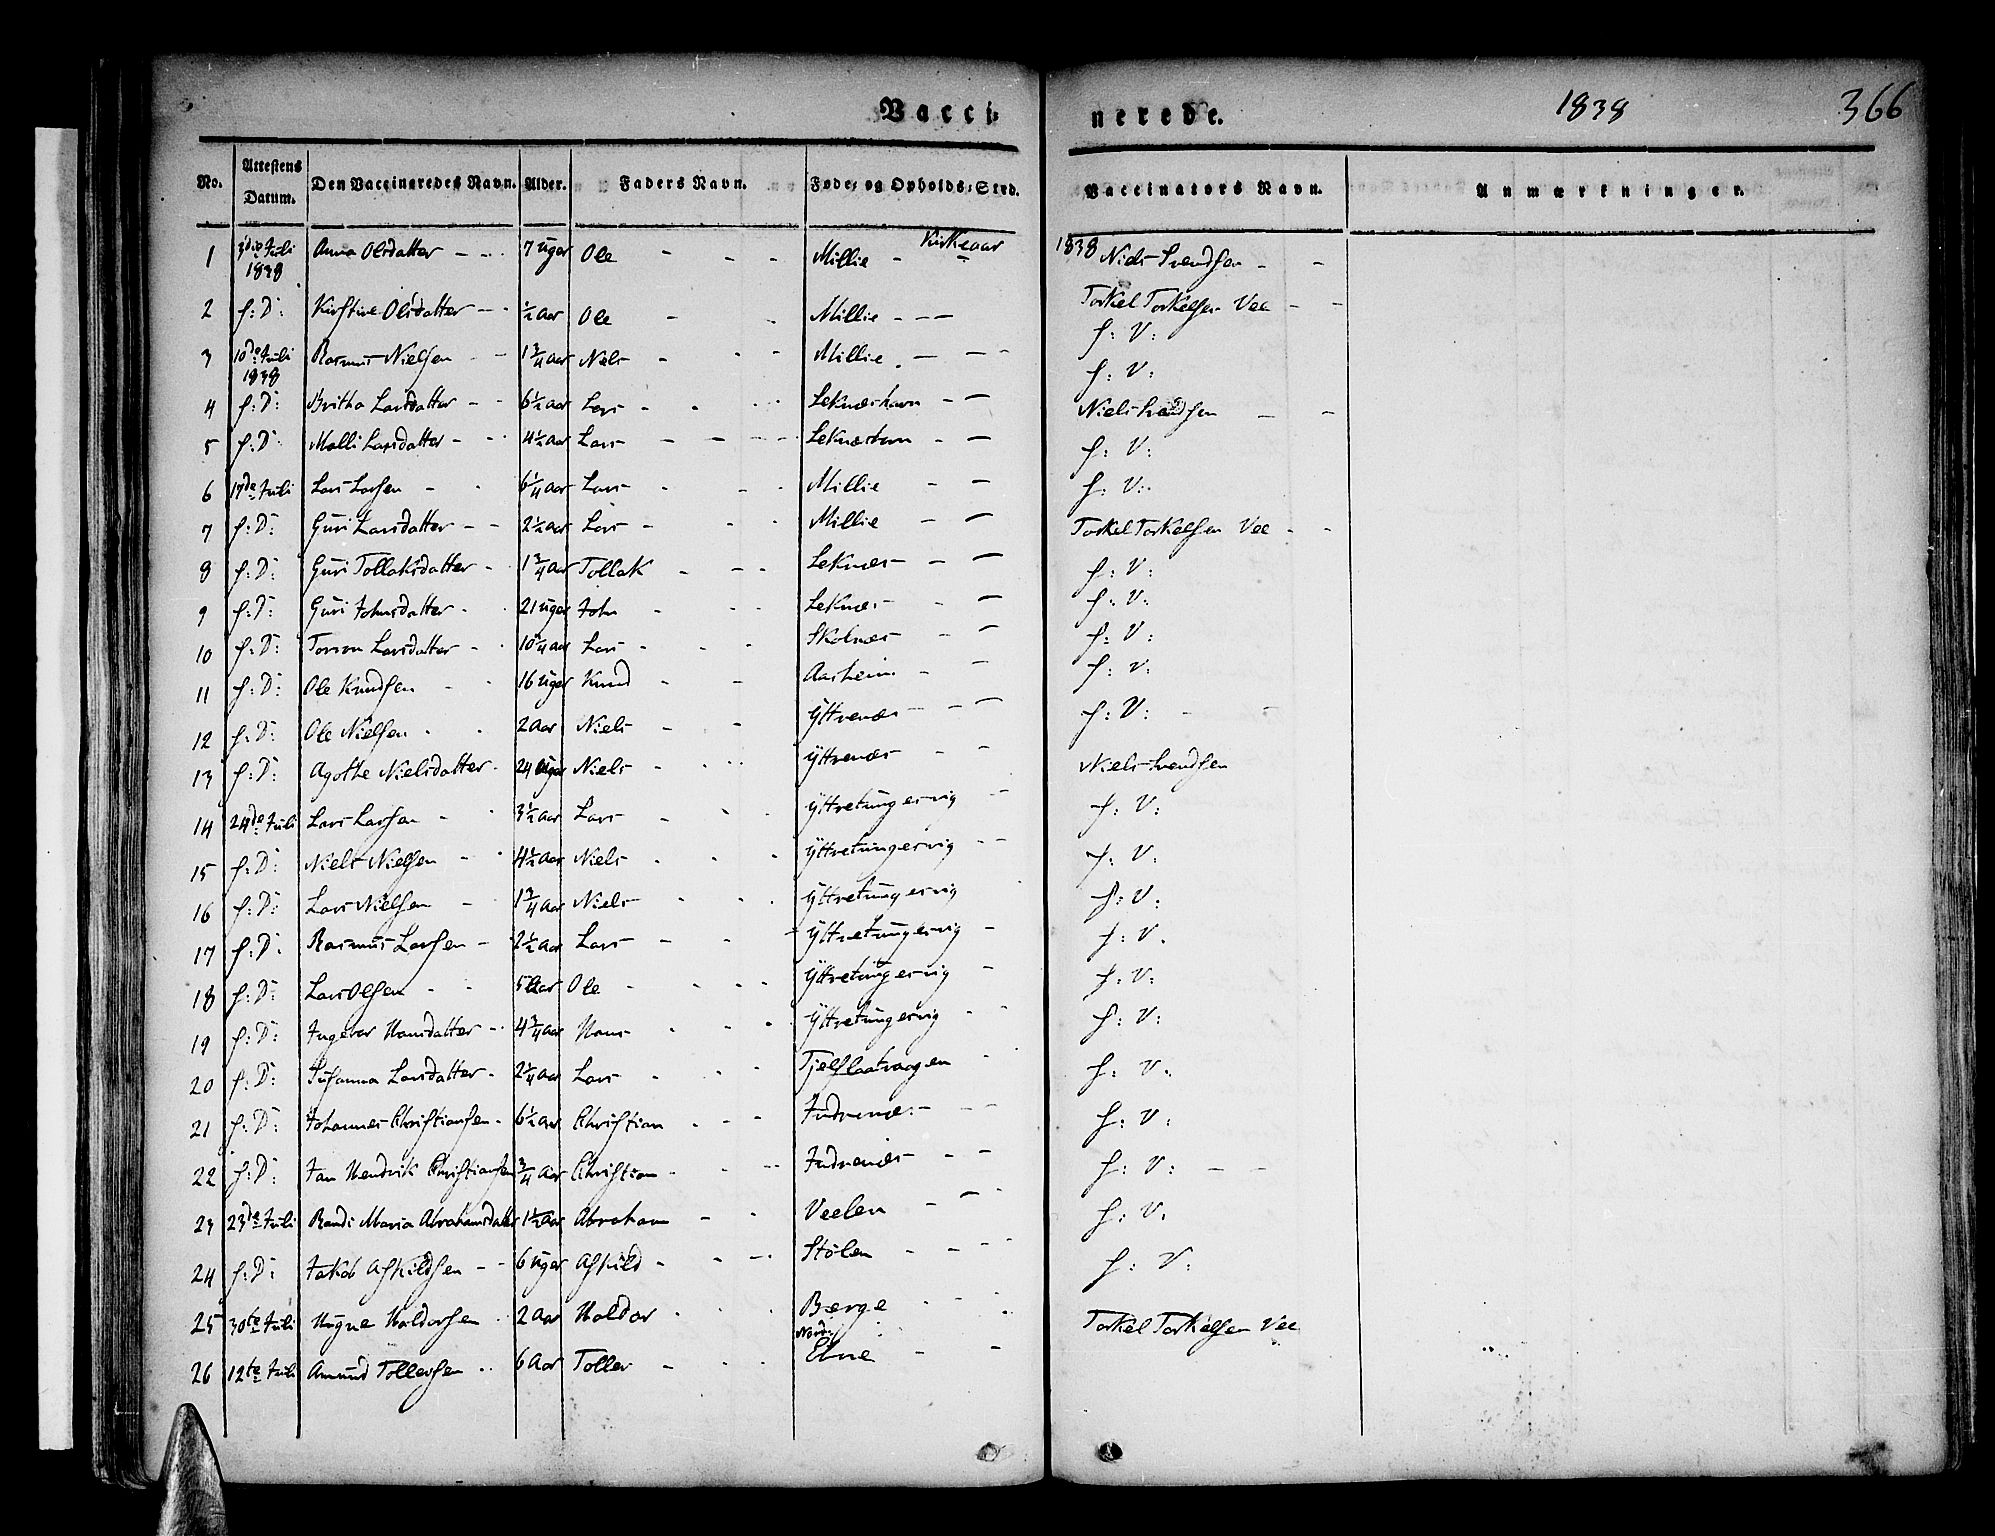 Vacci-nerede. 1838 366
No. Attestens Datum. Den Vaccineredes Navn. Alder. Faders Navn. Føde- og Opholds-Sted. Vaccinators Navn. Anmærkninger.
Kirkeaar 1838
1 3die Juli 1838 Anna Olsdatter 7 Uger Ole Millie Niels Svendsen
2 f: D: Kirstine Olsdatter ½ Aar Ole Millie Torkel Torkelsen Vee
f: V:
3 10de Juli 1838 Rasmus Nielsen 1¾ Aar Niels Millie f: V:
4 f: D: Britha Larsdatter 6½ Aar Lars Leknæshavn Niels Svendsen
5 f: D: Malli Larsdatter 4½ Aar Lars f: V:
6 17de Juli Lars Larsen 6¼ Aar Lars Millie f: V:
7 f: D: Guri Larsdatter 2½ Aar Lars Millie Torkel Torkelsen Vee
8 f: D: Guri Tollaksdatter 1¾ Aar Tollak Leknæs f: V:
9 f: D: Guri Johnsdatter 21 Uger John Leknæs f: V:
10 f: D: Larsdatter 10¼ Aar Lars Skolnæs f: V:
11 f: D: Ole Knudsen 16 Uger Knud Aarheim f: V:
12 f: D: Ole Nielsen 2 Aar Niels Yttrenæs f: V:
13 f: D: Agathe Nielsdatter 24 Uger Niels Yttrenæs Niels Svendsen
14 24de Juli Lars Larsen 3½ Aar Lars Yttretungervig f: V:
15 f: D: Niels Nielsen 4½ Aar Niels Yttretungervig f: V:
16 f: D: Lars Nielsen 1¾ Aar Niels Yttretungervig f: V:
17 f: D: Rasmus Larsen 2½ Aar Lars Yttretungervig f: V.
18 f: D: Lars Olsen 5 Aar Ole Yttretungervig f: V:
19 f: D: Ingebor Hansdatter 4¾ Aar Hans Yttretungervig f: V:
20 f: D: Susanna Larsdatter 2¼ Aar Lars Tjelflaatvaagen f: V.
21 f: D: Johannes Christiansen 6½ Aar Christian Indrenæs f: V:
22 f: D: Jan Hendrik Christiansen ¾ Aar Christian Indrenæs f: V:
23 23de Juli Randi Maria Abrahamsdatter 1½ Aar Abraham Veelen f: V.
24 f: D: Jakob Askildsen 6 Uger Askild Stølen f: V:
25 30te Juli Hogne Haldorsen 2 Aar Haldor Berge Torkel Torkelsen Vee
26 12te Juli Amund Tollersen 6 Aar Toller Nord Etne